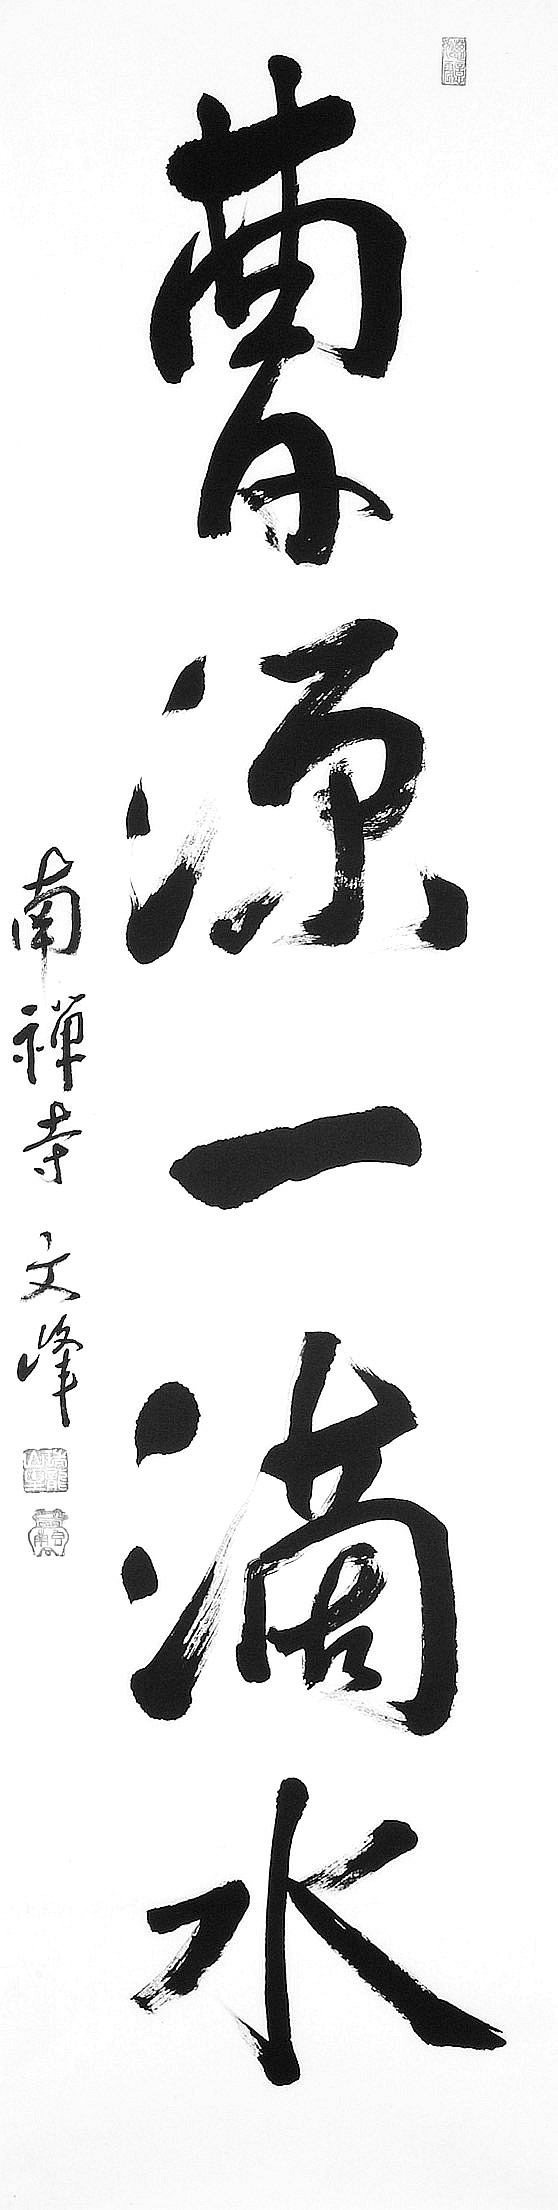 曹源一滴水
南禅寺 文峰